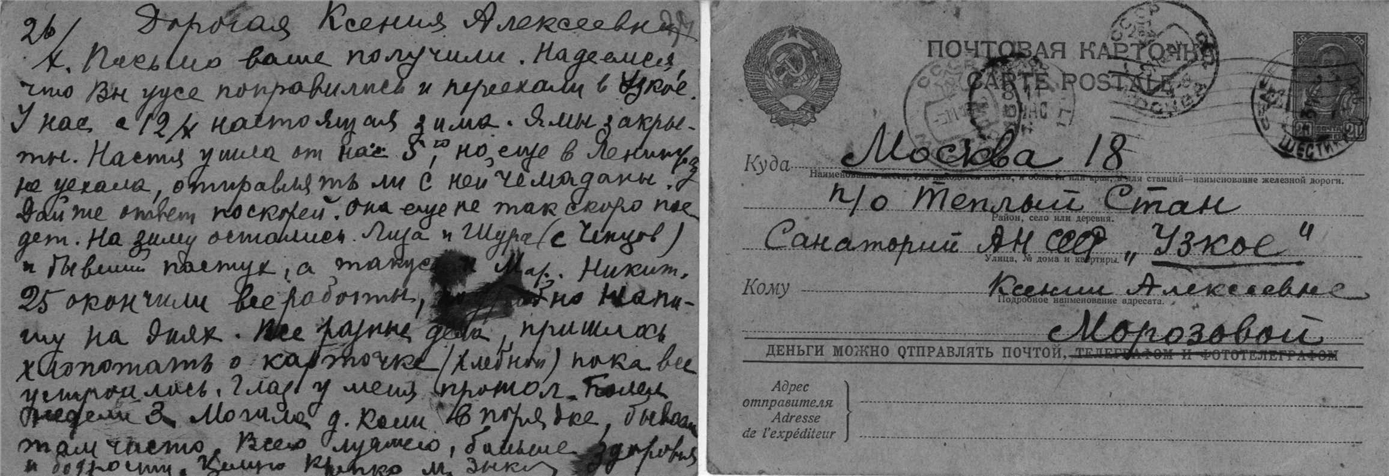 26/ Дорогая Ксения Алексеевна
X. Письмо ваше получили. Надеемся
что Вы уже поправились и переехали в Узкое.
У нас с 12/X настоящая зима. Ямы закры-
ты. Настя ушла от нас 5, но еще в Ленинград
не уехала, отправлять ли с ней чемоданы.
Дайте ответ поскорей. Она еще не так скоро пое
дет. На зиму остались Лиза и Шура (с Чепцов)
и бывший пастух, а также Мар. Никит.
25 окончили все работы, подробно напи-
шу на днях. Все разные дела, пришлось
хлопотать о карточке (хлебной) пока все
устроилось. Глаз у меня Болел
недели 3. Могила д. Коли в порядке, бываем
там часто. Всего лучшего, больше здоровья
и бодрости. Целую крепко
ПОЧТОВАЯ КАРТОЧКА
CARTE POSTALE
СССР
МОСКВА
20 20
Куда Москва 18
Наименование железной дороги.
п/о Теплый Стан
Район, село или деревня.
Санаторий АН СССР „Узкое"
Улица, № дома и квартиры.
Кому Ксении Алексеевне
Подробное наименование адресата.
Морозовой
ДЕНЬГИ МОЖНО ОТПРАВЛЯТЬ ПОЧТОЙ, ТЕЛЕГРАФОМ И ФОТОТЕЛЕГРАФОМ
Адрес
отправителя
Adresse
de l'expéditeur